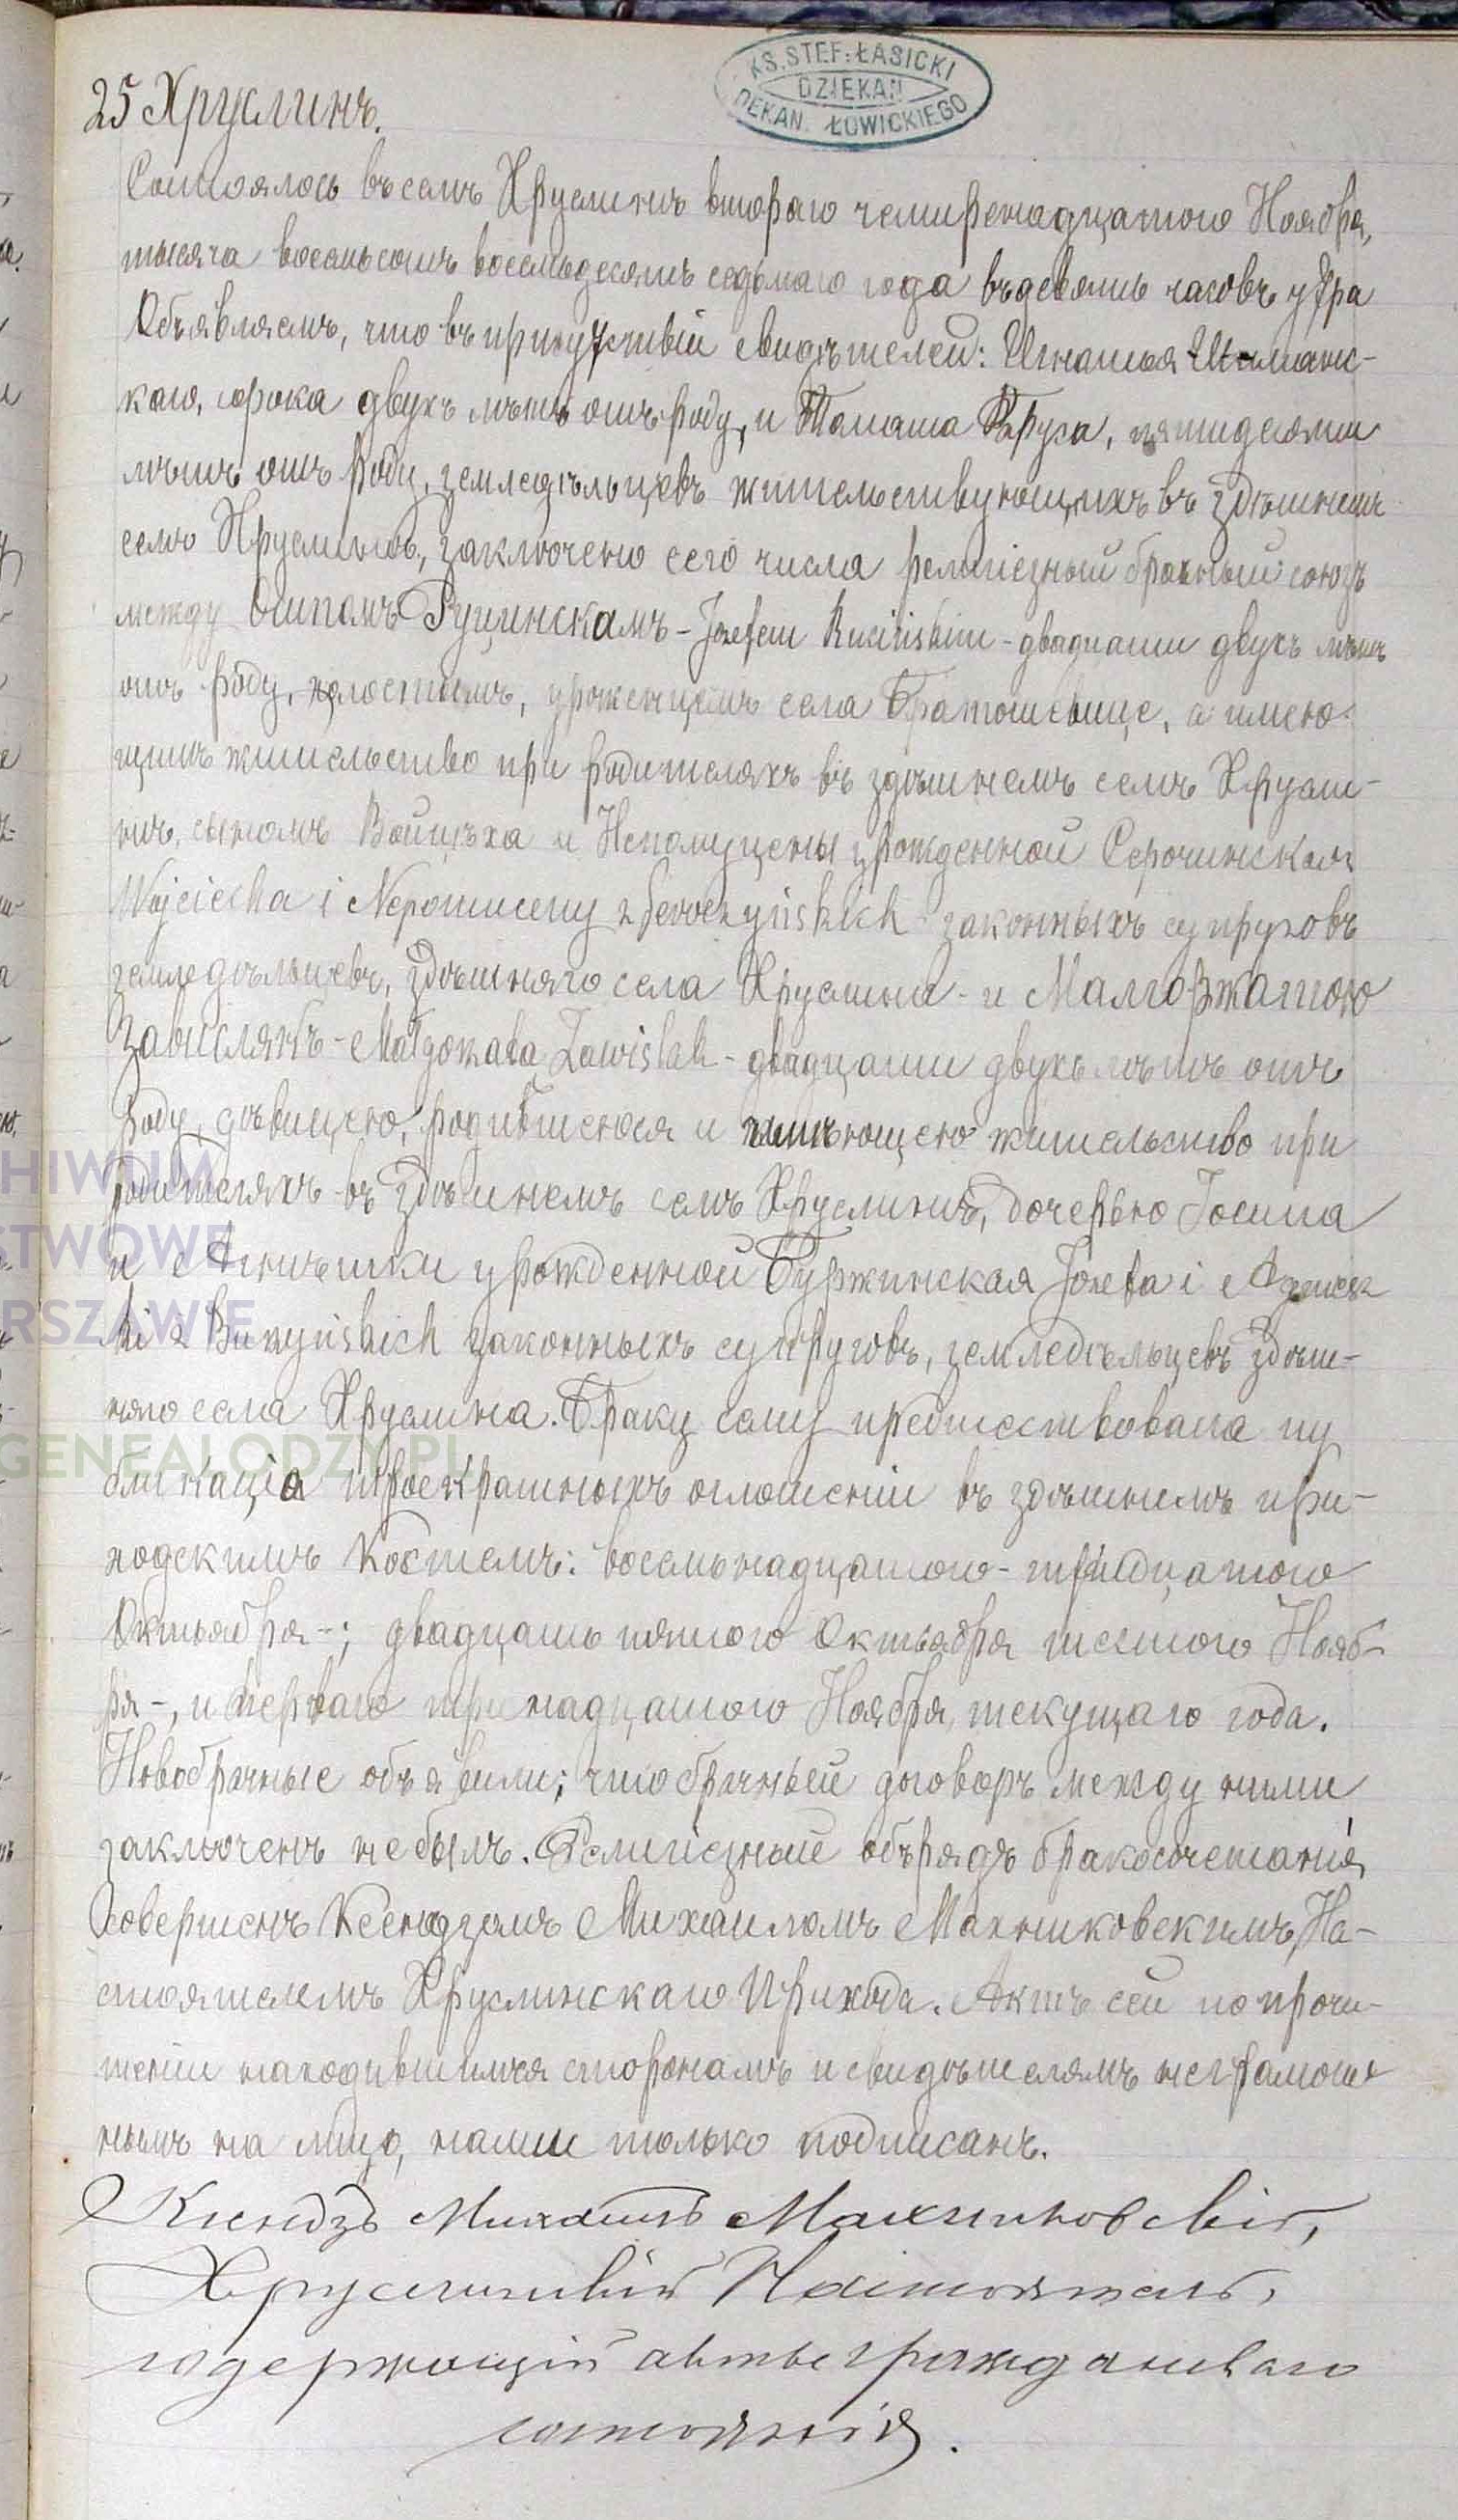 KS. STEF: ŁASICKI
DZIEKAN
DEKAN. ŁOWICKIEGO
25 Хруслинъ.
Состоялось въ селѣ Хруслинѣ втораго четыренадцатого Ноября,
тысяча восемьсотъ восемьдесятъ седьмаго года въ девять часовъ утра
Объявляемъ, что въ присутствіи свидѣтелей: Игнатья
каго, сорока двухъ лѣтъ отъ роду, и Томаша пятидесяти
лѣтъ отъ роду, земледѣльцевъ жительствующихъ въ здѣшнемъ
селѣ Хруслинѣ, заключено сего числа религіезный брачный союзъ
между Осипомъ Руцинскамъ - Józefem Rucińskim - двадцати двухъ лѣтъ
отъ роду, холостымъ, уроженцемъ села Братошевице, а имею-
щимъ жительство при родителяхъ въ здѣшнемъ селѣ Хрусли-
нѣ, сыномъ Войцѣха и Непомуцены урожденной Серочинской
Wojciecha i Nepomuceny z Seroczyńskich законныхъ супруговъ
земледѣльцевъ, здѣшняго села Хруслина - и Малгоржатою
Зависляѣкъ - Małgorzata Zawiślak - двадцати двухъ лѣтъ отъ
роду, дѣвицею, родившеюся и имѣющею жительство при
родителяхъ въ здѣшнемъ селѣ Хруслинѣ, дочерью Іосифа
и Агнѣшки урожденной Буржинская Józefa i Agniesz
ki z Burzyńskich законныхъ супруговъ, земледѣльцевъ здѣш-
няго села Хруслина. Браку сему предшествовала пу
бликація троекратныхъ оглошеній въ здѣшнемъ при-
ходскимъ костелѣ: восемьнадцатого - тридцатого
Октября -; двадцать пятого Октября шестого Нояб-
ря -, и перваго тринадцатого Ноября, текущаго года.
Новобрачные объявили; что брачный договоръ между ними
заключенъ не былъ. Религіезный обърядъ бракосочетанія
совершенъ Ксендземъ Михаиломъ Махниковскимъ, На-
стоятелемъ Хруслинскаго Прихода. Актъ сей по прочи-
теніи находившимся сторонамъ и свидѣтелямъ неграмот-
нымъ на лицо, нами только подписанъ.
Ксендзъ Михаилъ Махниковскій,
Хруслинскій Настоятель,
содержащій акты гражданскаго
состоянія.